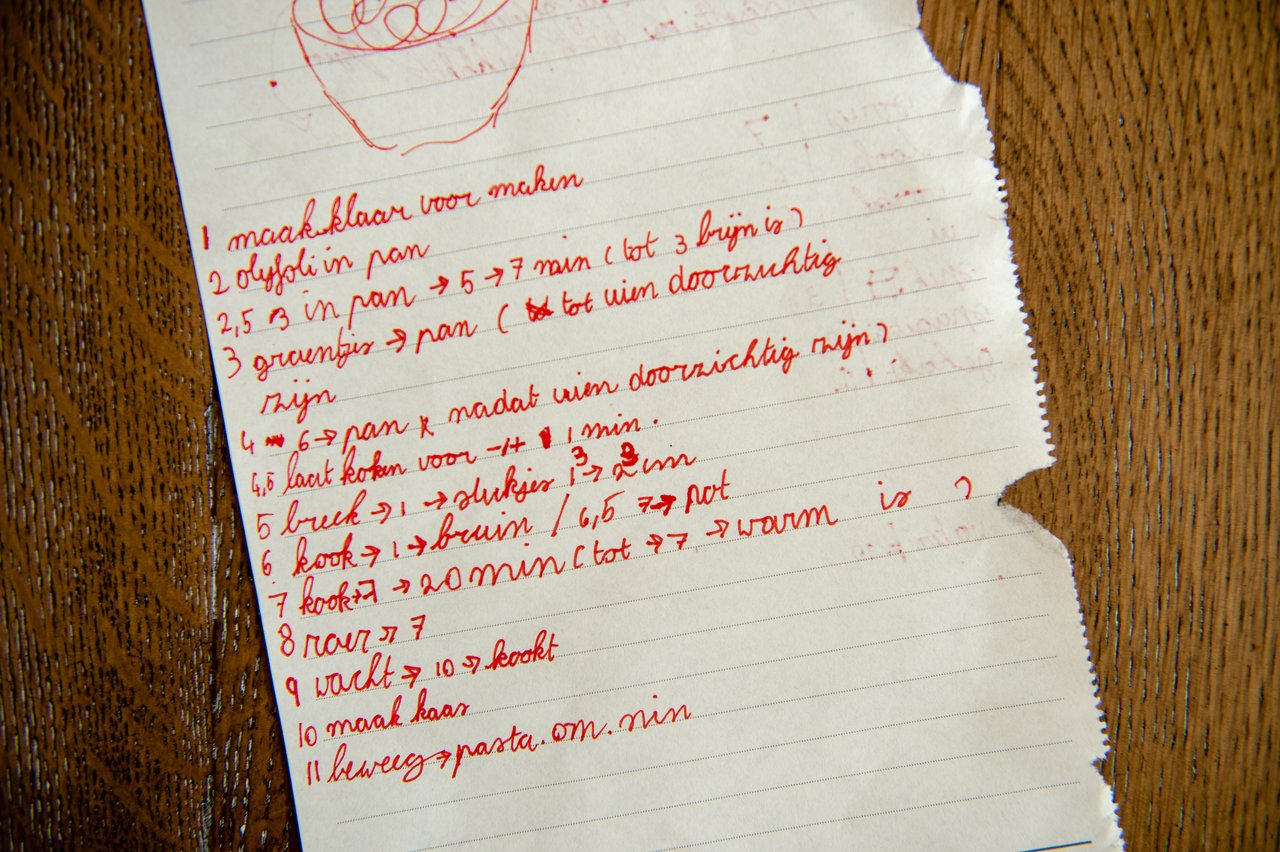 1 maak klaar voor maken
2 olijfoli in pan
2,5 3 in pan → 5 → 7 min (tot 3 brijn is)
3 groentjes → pan ( tot uien doorzuchtig
zijn
4 6 → pan nadat uien doorzichtig zijn)
4,5 laat koken voor -+ 1 min.
5 breek → 1 → stukjes 1 → 3 cm
6 kook → 1 → bruin / 6,5 7 → pot
7 kook → 7 → 20 min (tot → 7 → warm is )
8 roer → 7
9 wacht → 10 → kookt
10 maak kaas
11 beweeg → pasta.om.nin